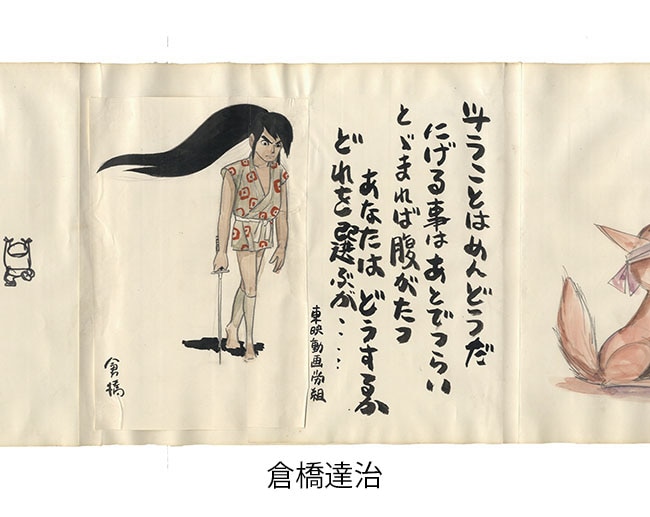 斗うことはめんどうだ
にげる事はあとでつらい
とゞまれば腹がたつ
あなたはどうするか
どれを選ぶが・・・・
東映動画労組
倉橋
倉橋達治